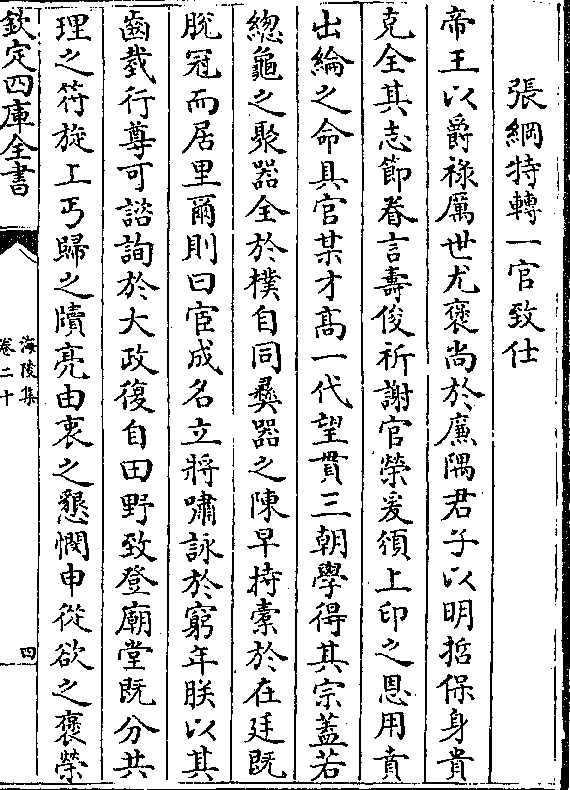 張綱特轉一官致仕
帝王以爵祿厲世尤褒尚於廉隅君子以明哲保身貴
克全其志節眷言壽俊祈謝官榮爰須上印之恩用賁
出綸之命具官某才髙一代望貫三朝學得其宗蓋若
總龜之聚器全於樸自同彞器之陳早持橐於在廷既
脫冠而居里爾則曰宦成名立將嘯詠於窮年朕以其
齒耄行尊可諮詢於大政復自田野致登廟堂既分共
理之符旋上丐歸之牘亮由衷之懇憫申從欲之褒榮
欽定四庫全書
海陵集
卷二十
四